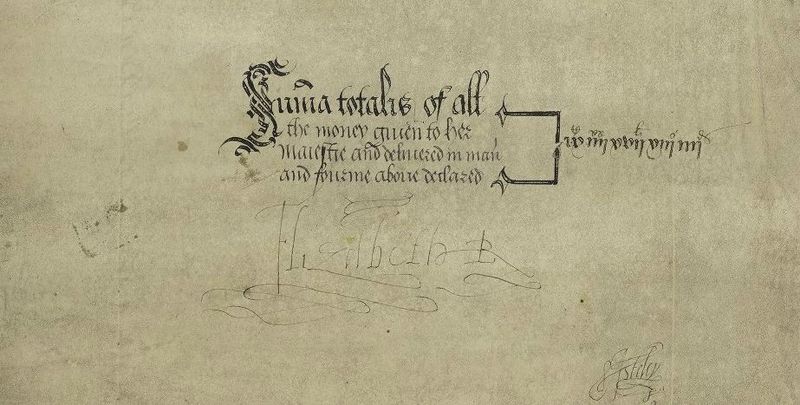 Sum̃a totalis of all
the money giuen to her
Maiestie and deliuered in man̄
and fourme aboue declared
Elizabeth R
JAstley